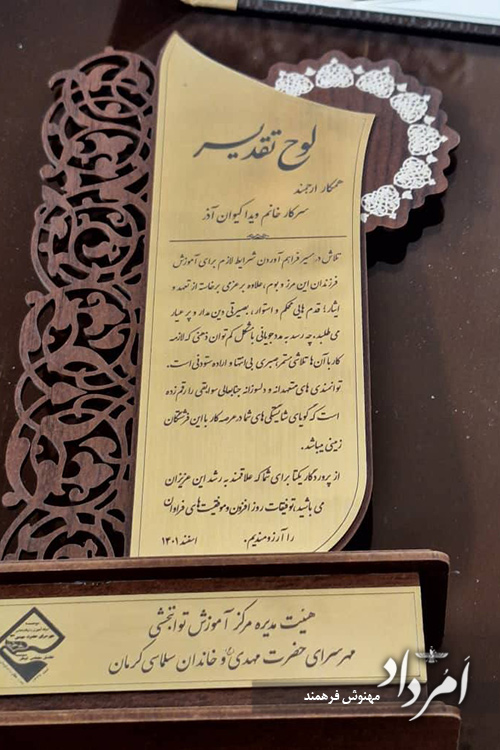 لوح تقدیر
همکار ارجمند
سرکار خانم ویدا کیوان آذر
تلاش در مسیر فراهم آوردن شرایط لازم برای آموزش
فرزندان این مرز و بوم، علاوه بر عزمی برخاسته از تعهد و
ایثار؛ قدم هایی محکم و استوار، بصیرتی دین مدار و پر عیار
می طلبد، چه رسد به مددجویانی با مشکل کم توان ذهنی که لازمه
کار با آن ها تلاشی مستمر، صبری بی انتها و اراده ستودنی است.
توانمندی های متعهدانه و دلسوزانه جنابعالی سوابقی را رقم زده
است که گویای شایستگی های شما در عرصه کار با این فرشتگان
زمینی میباشد.
از پروردگار یکتا برای شما که علاقمند به رشد این عزیزان
می باشید، توفیقات روز افزون و موفقیت های فراوان
را آرزومندیم. اسفند ۱۴۰۱
هیئت مدیره مرکز آموزش توانبخشی
مهرسرای حضرت مهدی و خاندان سلاسی کرمان
اَمرداد
مهنوش فرهمند